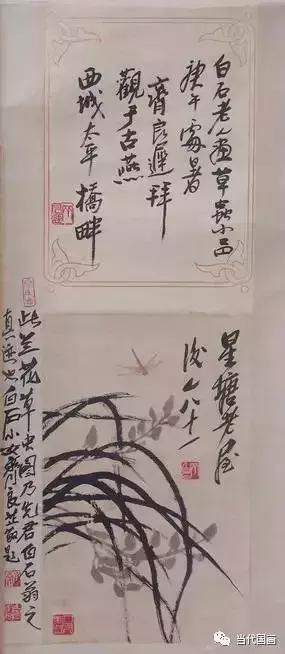 白石老人画草蟲小品
庚午處暑
齊良遲拜
觀于古燕
西城太平橋畔
星塘老屋
後人八十一
此兰花草虫图乃先君白石翁之
真迹也白石小女齊良芷敬題
当代国画